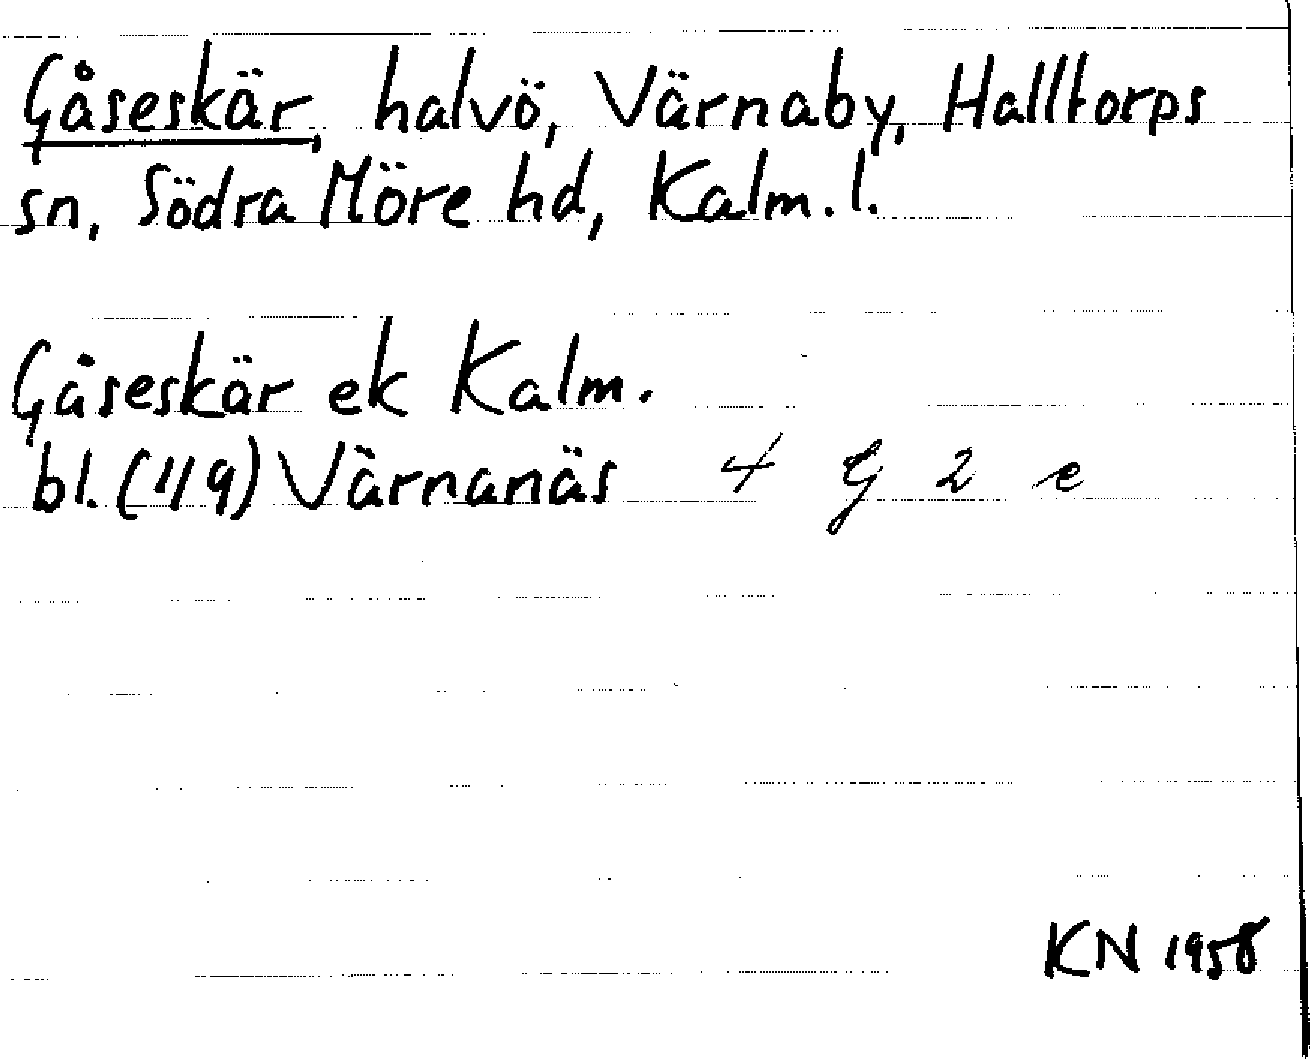 Gåseskär, halvö, Värnaby, Halltorps
sn, Södra Möre hd, Kalm. l.
Gåseskär ek Kalm.
bl. (119) Värnanäs 4 G 2 e
KN 1958